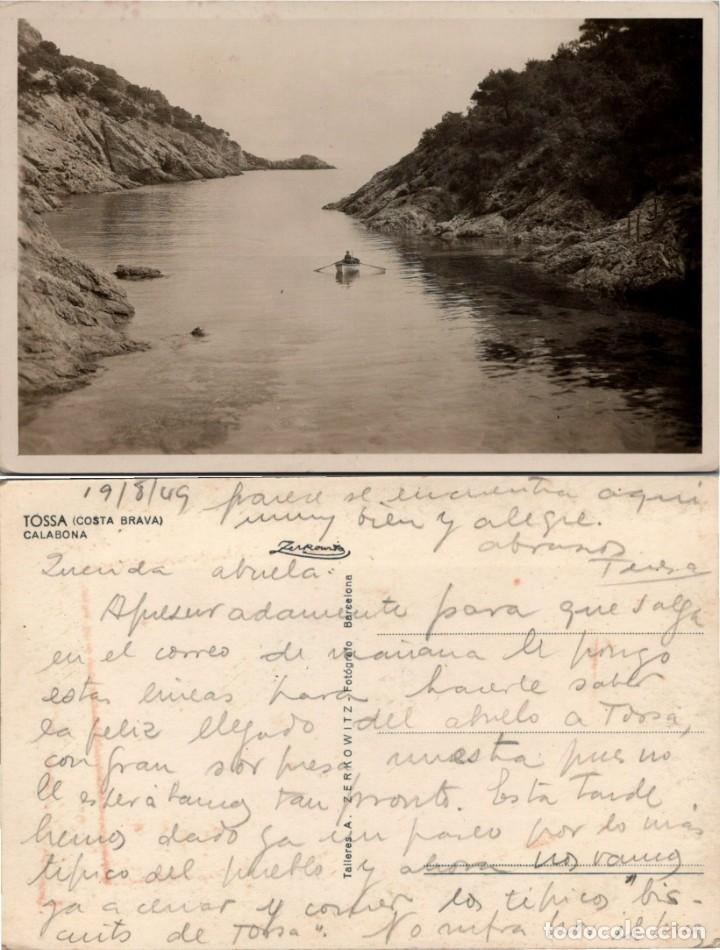 19/8/49 parece se encuentra aqui
muy bien y alegre.
TOSSA (COSTA BRAVA)
CALABONA
Zerkowitz
abrazos
Teresa
Querida abuela:
Apresuradamente para que salga
en el correo de mañana le pongo
estas lineas para hacerle saber
la feliz llegada del abuelo a Tossa,
con gran sorpresa nuestra pues no
le esperabamos tan pronto. Esta tarde
hemos dado ya un paseo por lo más
tipico del pueblo y ahora nos vamos
ya a cenar y comer los tipicos "bis-
cuits de Tossa". No sufra por
Talleres A. ZERKOWITZ - Fotógrafo Barcelona
todocoleccion
todocoleccion.net